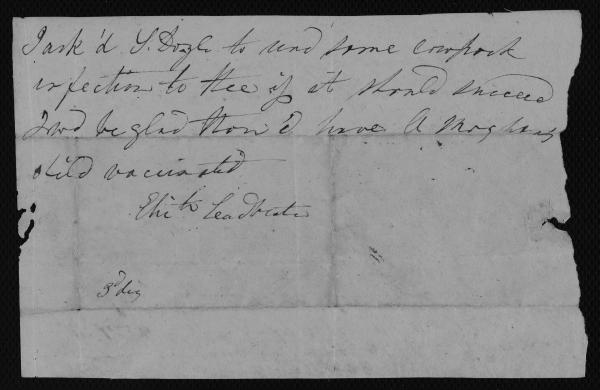 I ask'd S. Doyle to send some cowpock
infection to thee if it should succeed
I wd be glad thou'd have A
child vaccinated
Elizth Leadbeater
3d day